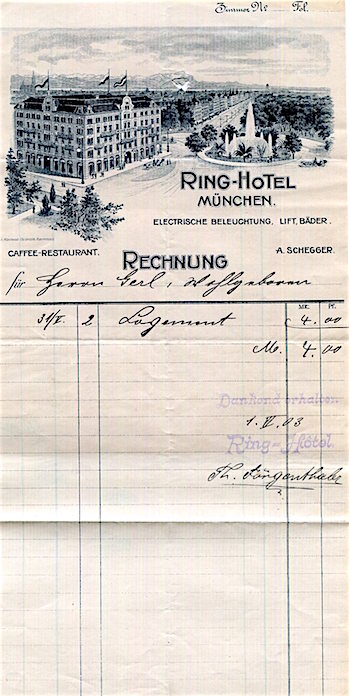 Zimmer No Tel.
RING-HOTEL
MÜNCHEN.
ELECTRISCHE BELEUCHTUNG, LIFT, BÄDER.
CAFFÉE-RESTAURANT.
A. SCHEGGER.
RECHNUNG
für Herrn Gerl, Wohlgeboren
MK. PF.
31/V. 2 Logement 4.00
M. 4.00
Dankend erhalten
1. VI. 03
Ring-Hôtel.
Th.